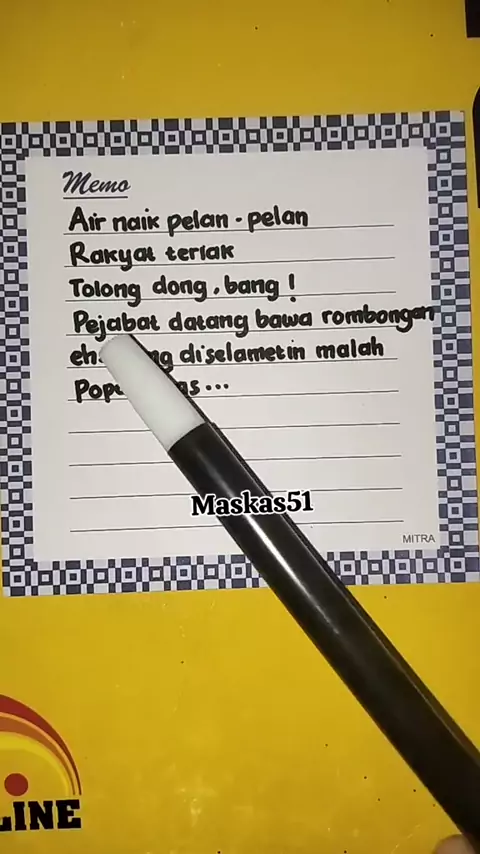 Memo
Air naik pelan-pelan
Rakyat teriak
Tolong dong, bang!
Pejabat datang bawa rombongan
diselametin malah
...
Maskas51
MITRA
LINE